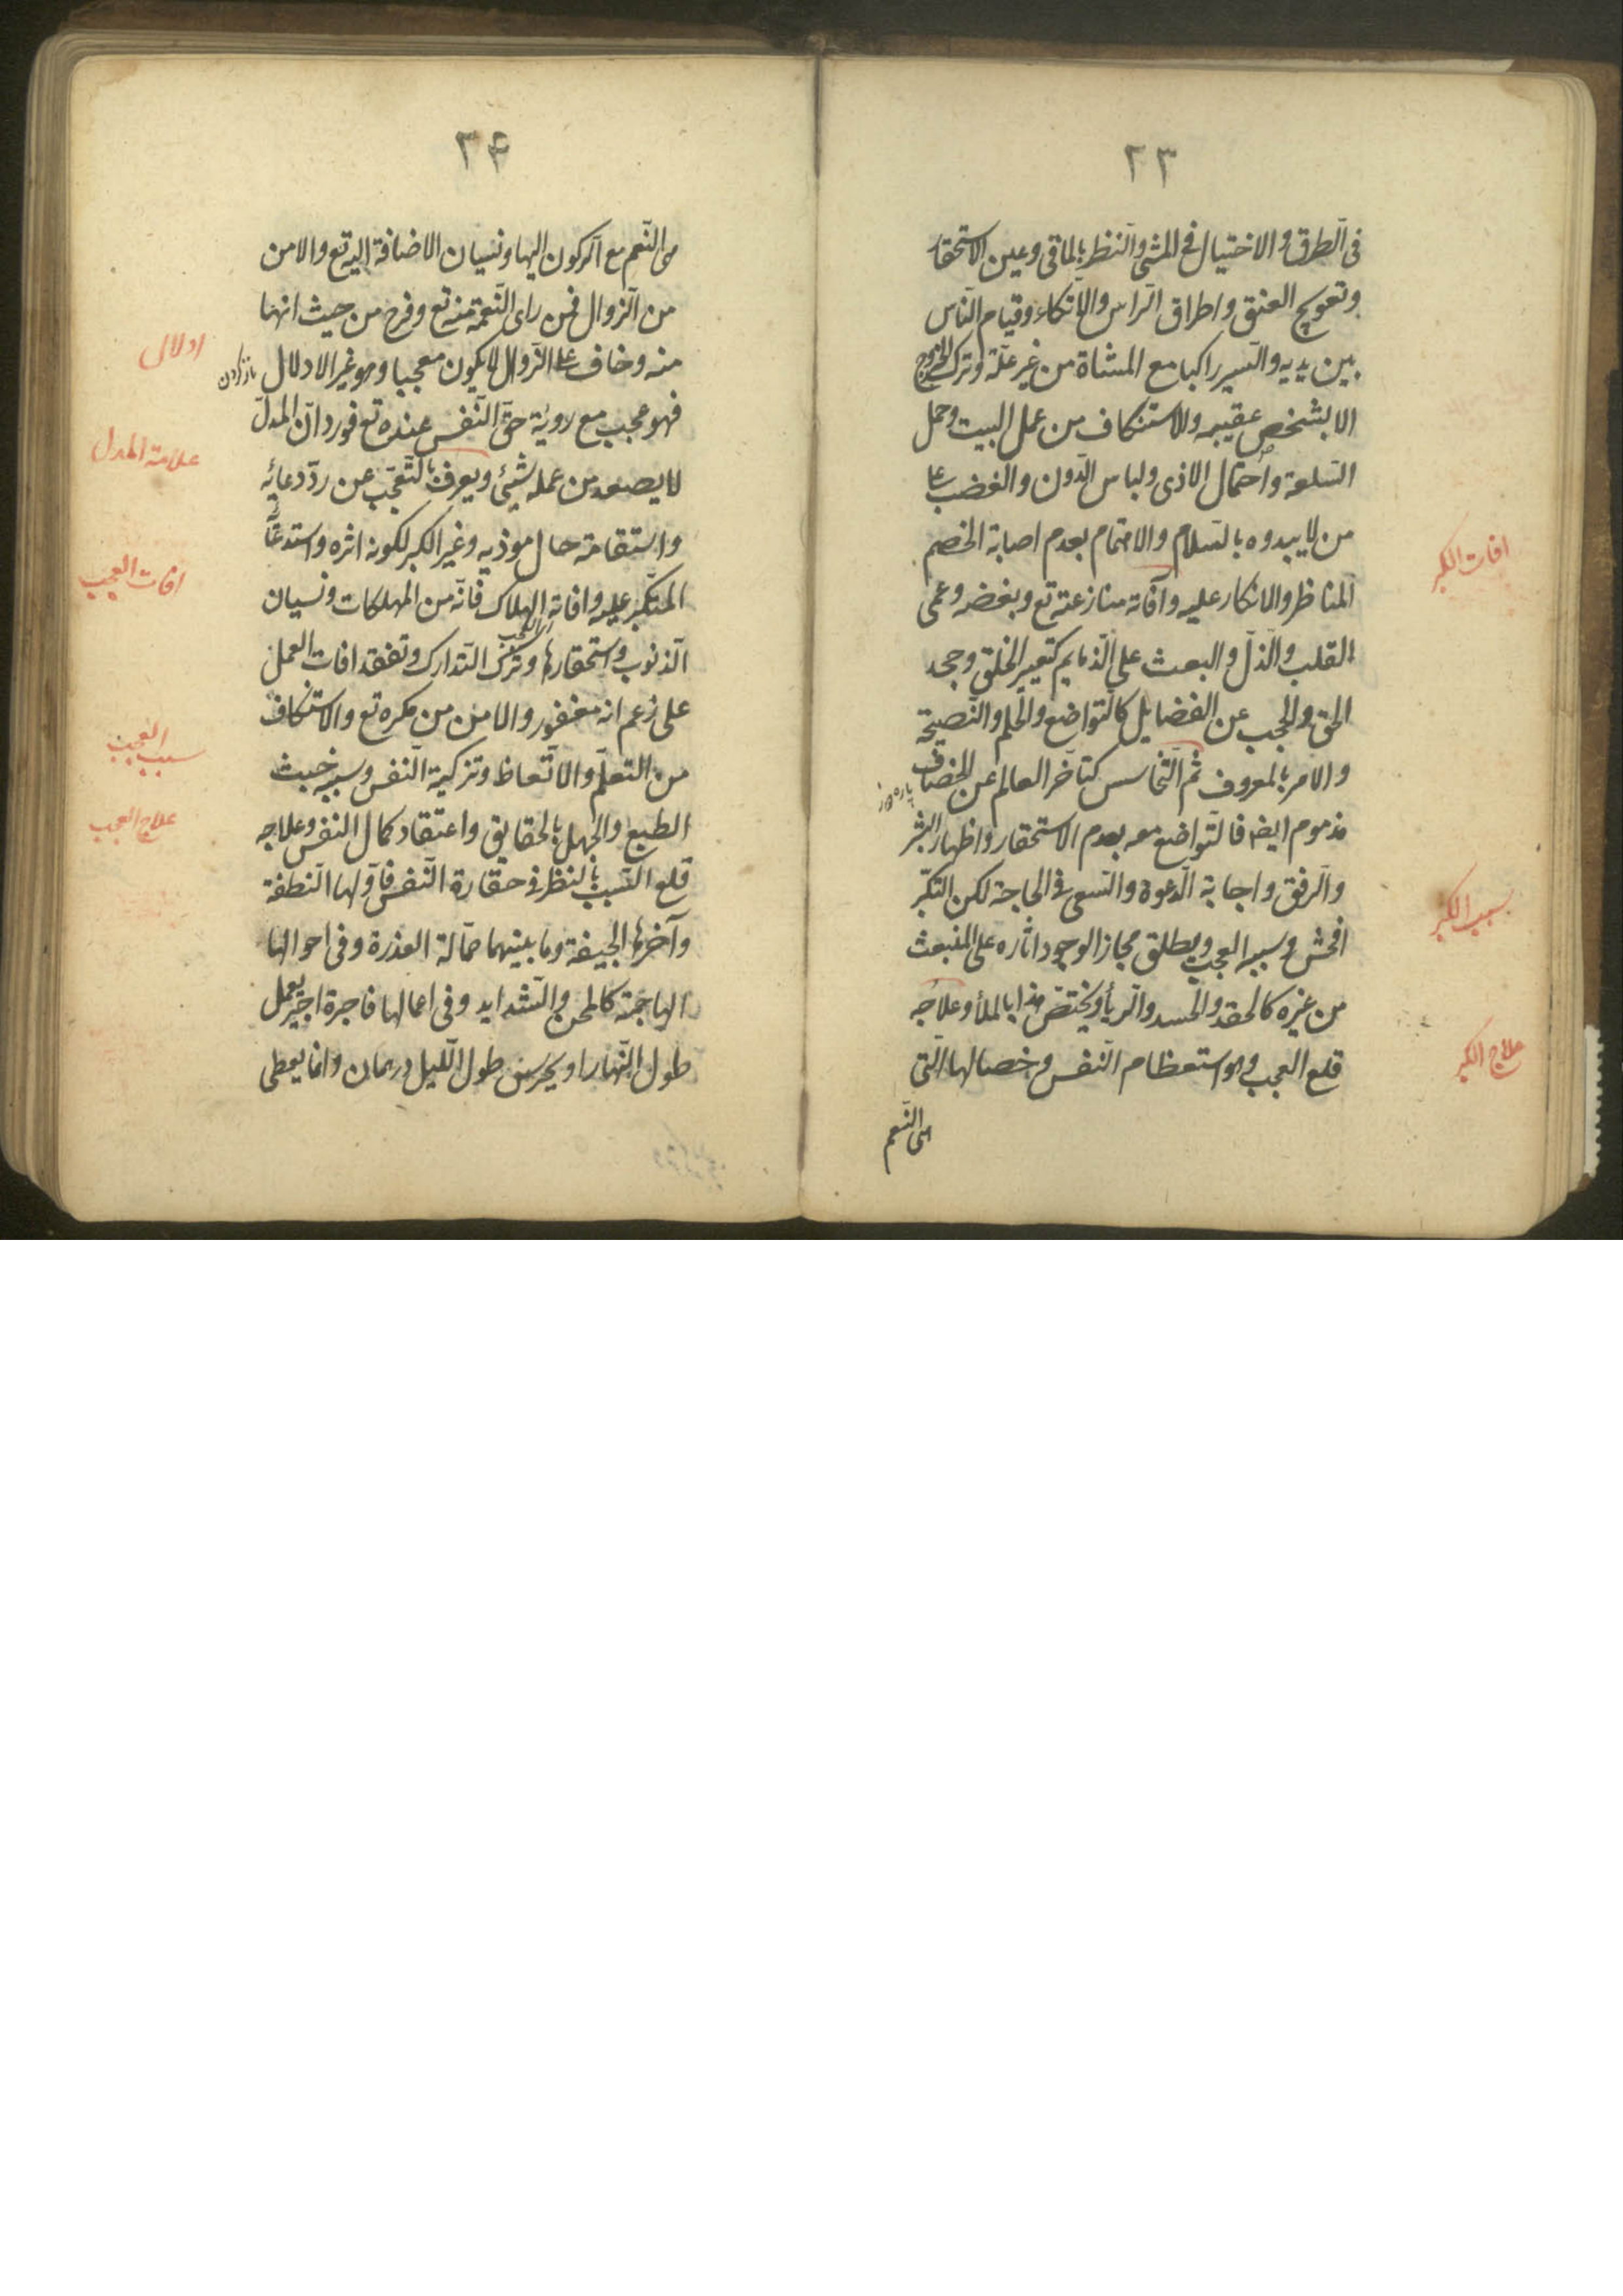 ٢٣
فى الطرق والاختيال فى المشى والنظر بالماقى وعين الاستحقار
وتعويج العنق واطراق الراس والاتكاء وقيام الناس
بين يديه والسير راكبا مع المشاة من غير علة وترك الخروج
الا بشخص عقيبه والاستنكاف من عمل البيت وحمل
السلعة واحتمال الاذى ولباس الدون والغضب على
من لا يبدوه بالسلام والاهتمام بعدم اصابة الخصم
المناظر والانكار عليه وآفاته منازعته تع وبغضه وعمى
القلب والذل والبعث على الذمايم كتعيير الخلق وجحد
الحق والحجب عن الفضايل كالتواضع والحلم والنصيحة
والامر بالمعروف ثم التخاسس كتاخر العالم عن الخصاف
پاره دوز
مذموم ايضا فالتواضع معه بعدم الاستحقار واظهار البشر
والرفق واجابة الدعوة والسعى فى الحاجة لكن التكبر
افحش وسببه العجب ويطلق مجازا لوجود اثاره على المنبعث
من غيره كالحقد والحسد والريأ ويختص هذا بالملأ وعلاجه
قلع العجب وهو استعظام النفس وخصالها التى
هى النعم
افات الكبر
سبب الكبر
علاج الكبر
٢۴
هى النعم مع الركون اليها ونسيان الاضافة اليه تع والامن
من الزوال فمن راى النعمة منه تع وفرح من حيث انها
منه وخاف على الزوال لا يكون معجبا وهو غير الادلال
فهو عجب مع روية حق النفس عنده تع فورد ان المدل
لا يصعد من عمله شئ ويعرف بالتعجب عن رد دعائه
واستقامة حال موذيه وغير الكبر لكونه اثره واستدعائه
المتكبر عليه وافاته الهلاك فانه من المهلكات ونسيان
الذنوب واستحقارها وترك التدارك وتفقد افات العمل
على زعم انه مغفور والامن من مكره تع والاستنكاف
من التعلم والاتعاظ وتزكية النفس وسببه خبث
الطبع والجهل بالحقايق واعتقاد كمال النفس وعلاجه
قلع السبب بالنظر فى حقارة النفس فاولها النطفة
وآخرها الجيفة وما بينهما حمالة العذرة وفى احوالها
الهاجمة كالمحن والشدايد وفى اعمالها فاجرة اجير يعمل
طول النهار او يحرس طول الليل درهمان وانما يعطى
ادلال
علامة المدل
افات العجب
سبب العجب
علاج العجب